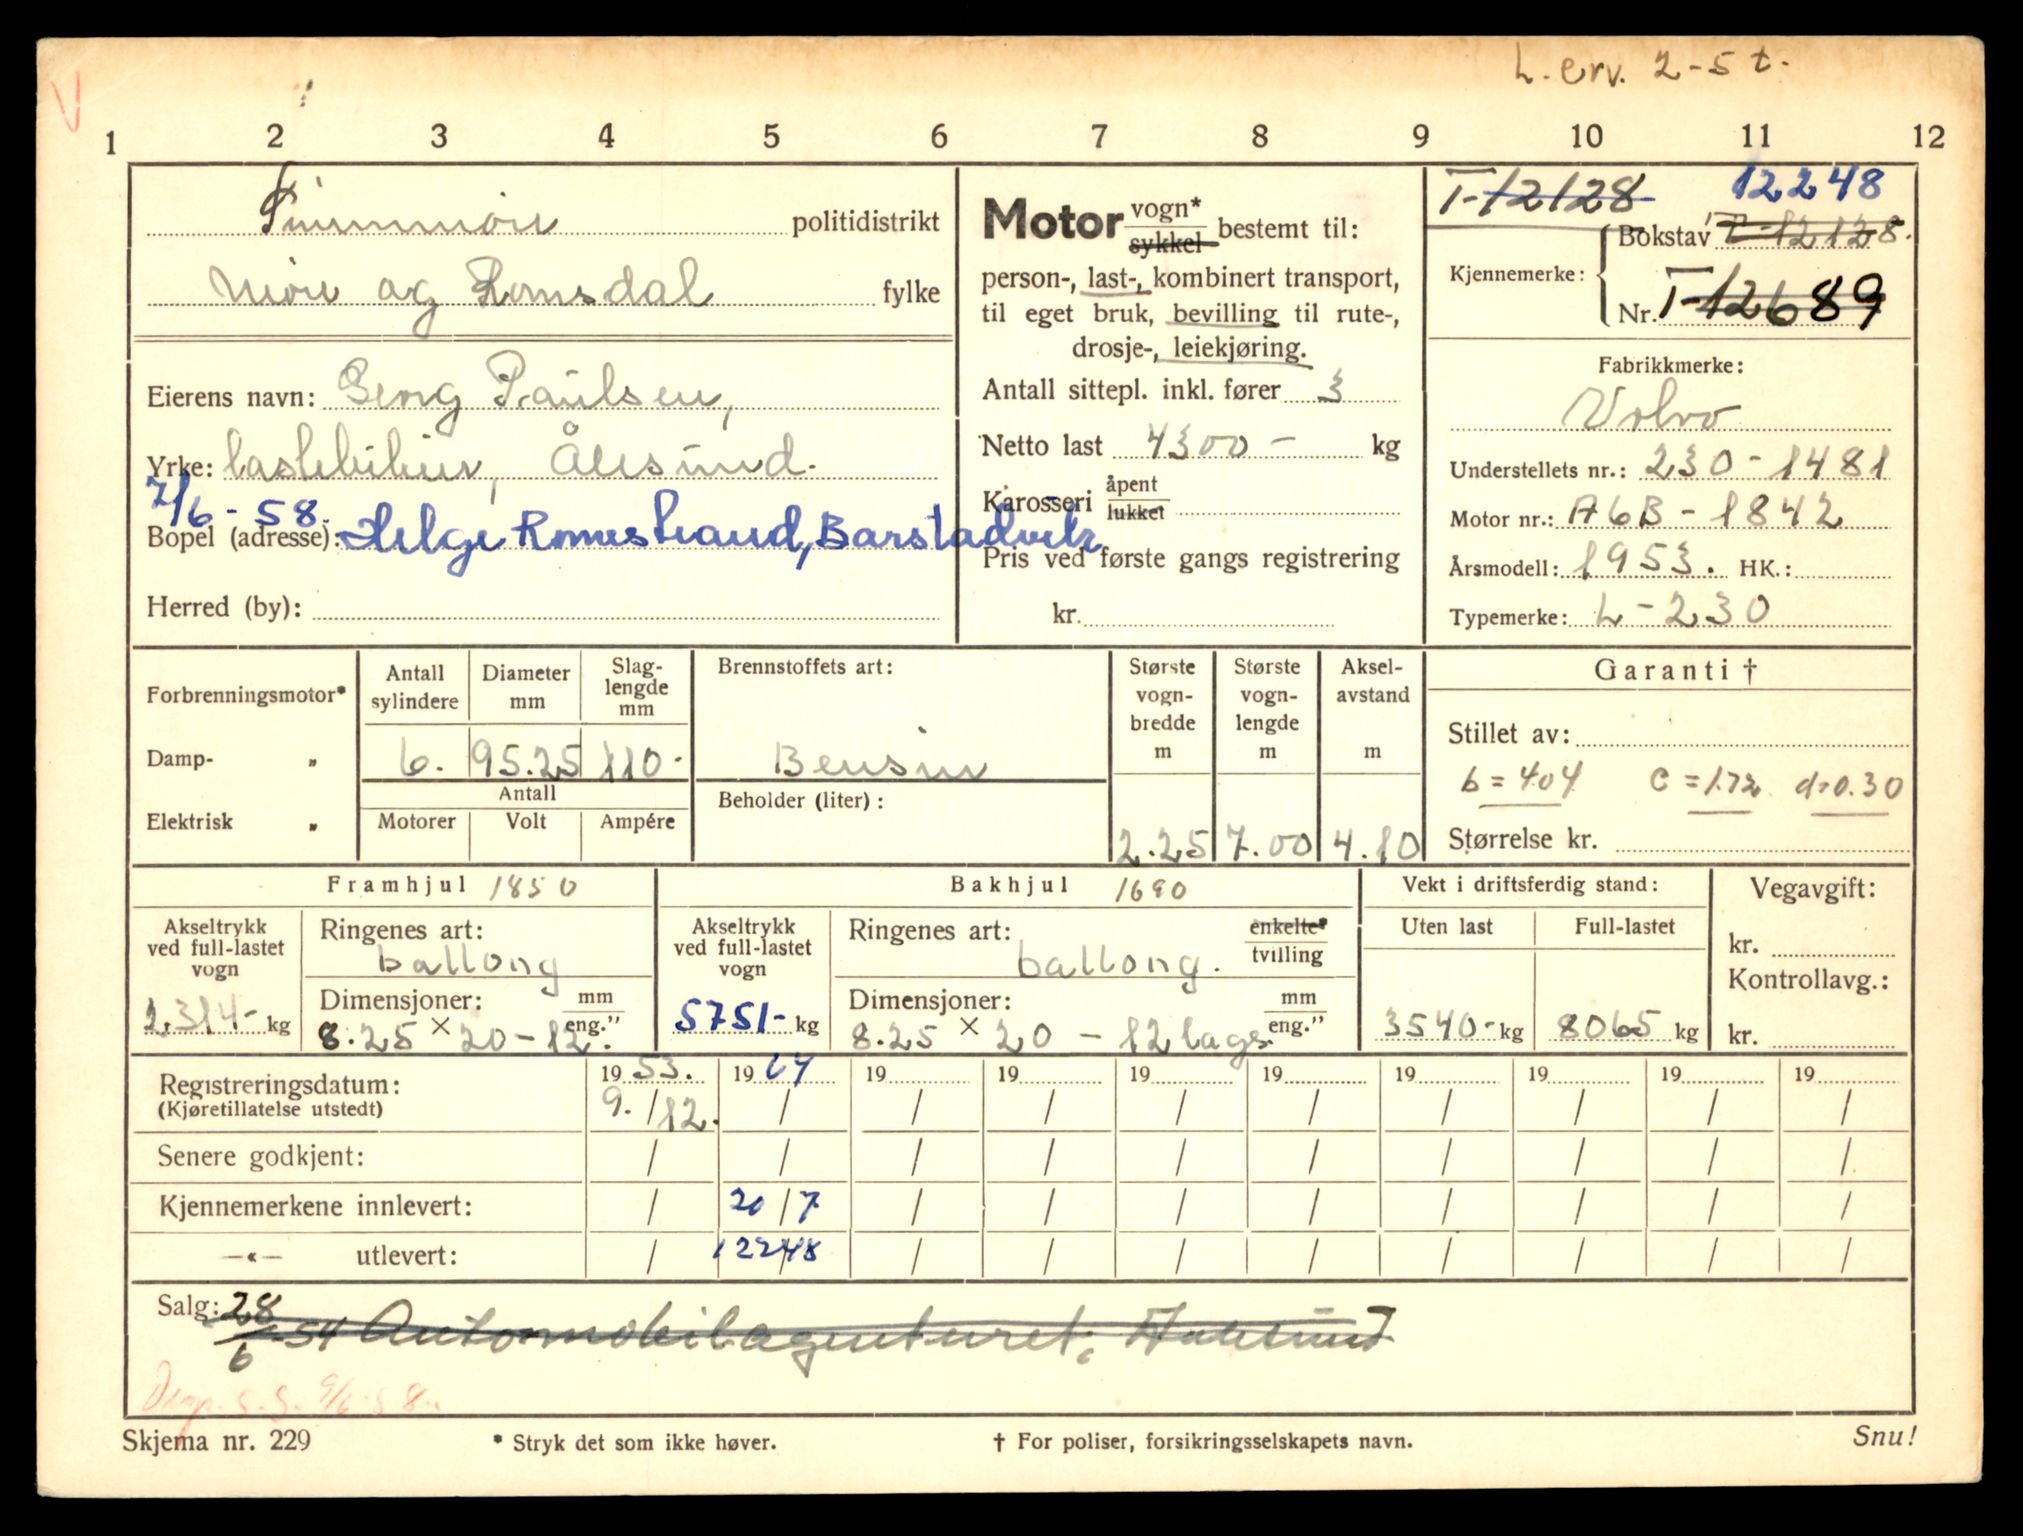 L. erv. 2-5 t.
V
1 2 3 4 5 6 7 8 9 10 11 12
Sunnmøre politidistrikt
Møre og Romsdal fylke
Eierens navn: Georg Paulsen,
Yrke: lastebileier, Ålesund.
7/6-58.
Bopel (adresse): Helge Romestrand, Barstadvik
Herred (by):
Motor vogn* sykkel bestemt til:
person-, last-, kombinert transport,
til eget bruk, bevilling til rute-,
drosje-, leiekjøring.
Antall sittepl. inkl. fører 3
Netto last 4300 - kg
Karosseri åpent lukket
Pris ved første gangs registrering
kr.
T-12128 12248
Bokstav T-12128.
Kjennemerke:
Nr. T-12689
Fabrikkmerke:
Volvo
Understellets nr.: 230-1481
Motor nr.: A6B-1842
Årsmodell: 1953. HK.:
Typemerke: L-230
Forbrenningsmotor*
Damp- „
Elektrisk „
Antall sylindere Diameter mm Slag-lengde mm
6. 95.25 110-
Antall
Motorer Volt Ampére
Brennstoffets art:
Bensin
Beholder (liter):
Største vogn-bredde m Største vogn-lengde m Aksel-avstand m
2.25 7.00 4.10
Garanti †
Stillet av:
b=4.04 c=1.72 d=0.30
Størrelse kr.
Framhjul 1850
Akseltrykk ved full-lastet vogn
2.314- kg
Ringenes art:
ballong
Dimensjoner: mm eng."
8.25 × 20-12.
Bakhjul 1690
Akseltrykk ved full-lastet vogn
5751- kg
Ringenes art: enkelte* tvilling
ballong.
Dimensjoner: mm eng."
8.25 × 20 - 12 lags.
Vekt i driftsferdig stand:
Uten last Full-lastet
3540- kg 8065 kg
Vegavgift:
kr.
Kontrollavg.:
kr.
Registreringsdatum: 19 53. 19 64 19 19 19 19 19 19 19 19
(Kjøretillatelse utstedt) 9. / 12. / / / / / / / / /
Senere godkjent: / / / / / / / / / /
Kjennemerkene innlevert: / 20 / 7 / / / / / / / /
—«— utlevert: / 12248 / / / / / / / /
Salg: 28/6-54 Automobilagenturet, Aalesund
9/6-58.
Skjema nr. 229
* Stryk det som ikke høver.
† For poliser, forsikringsselskapets navn.
Snu!